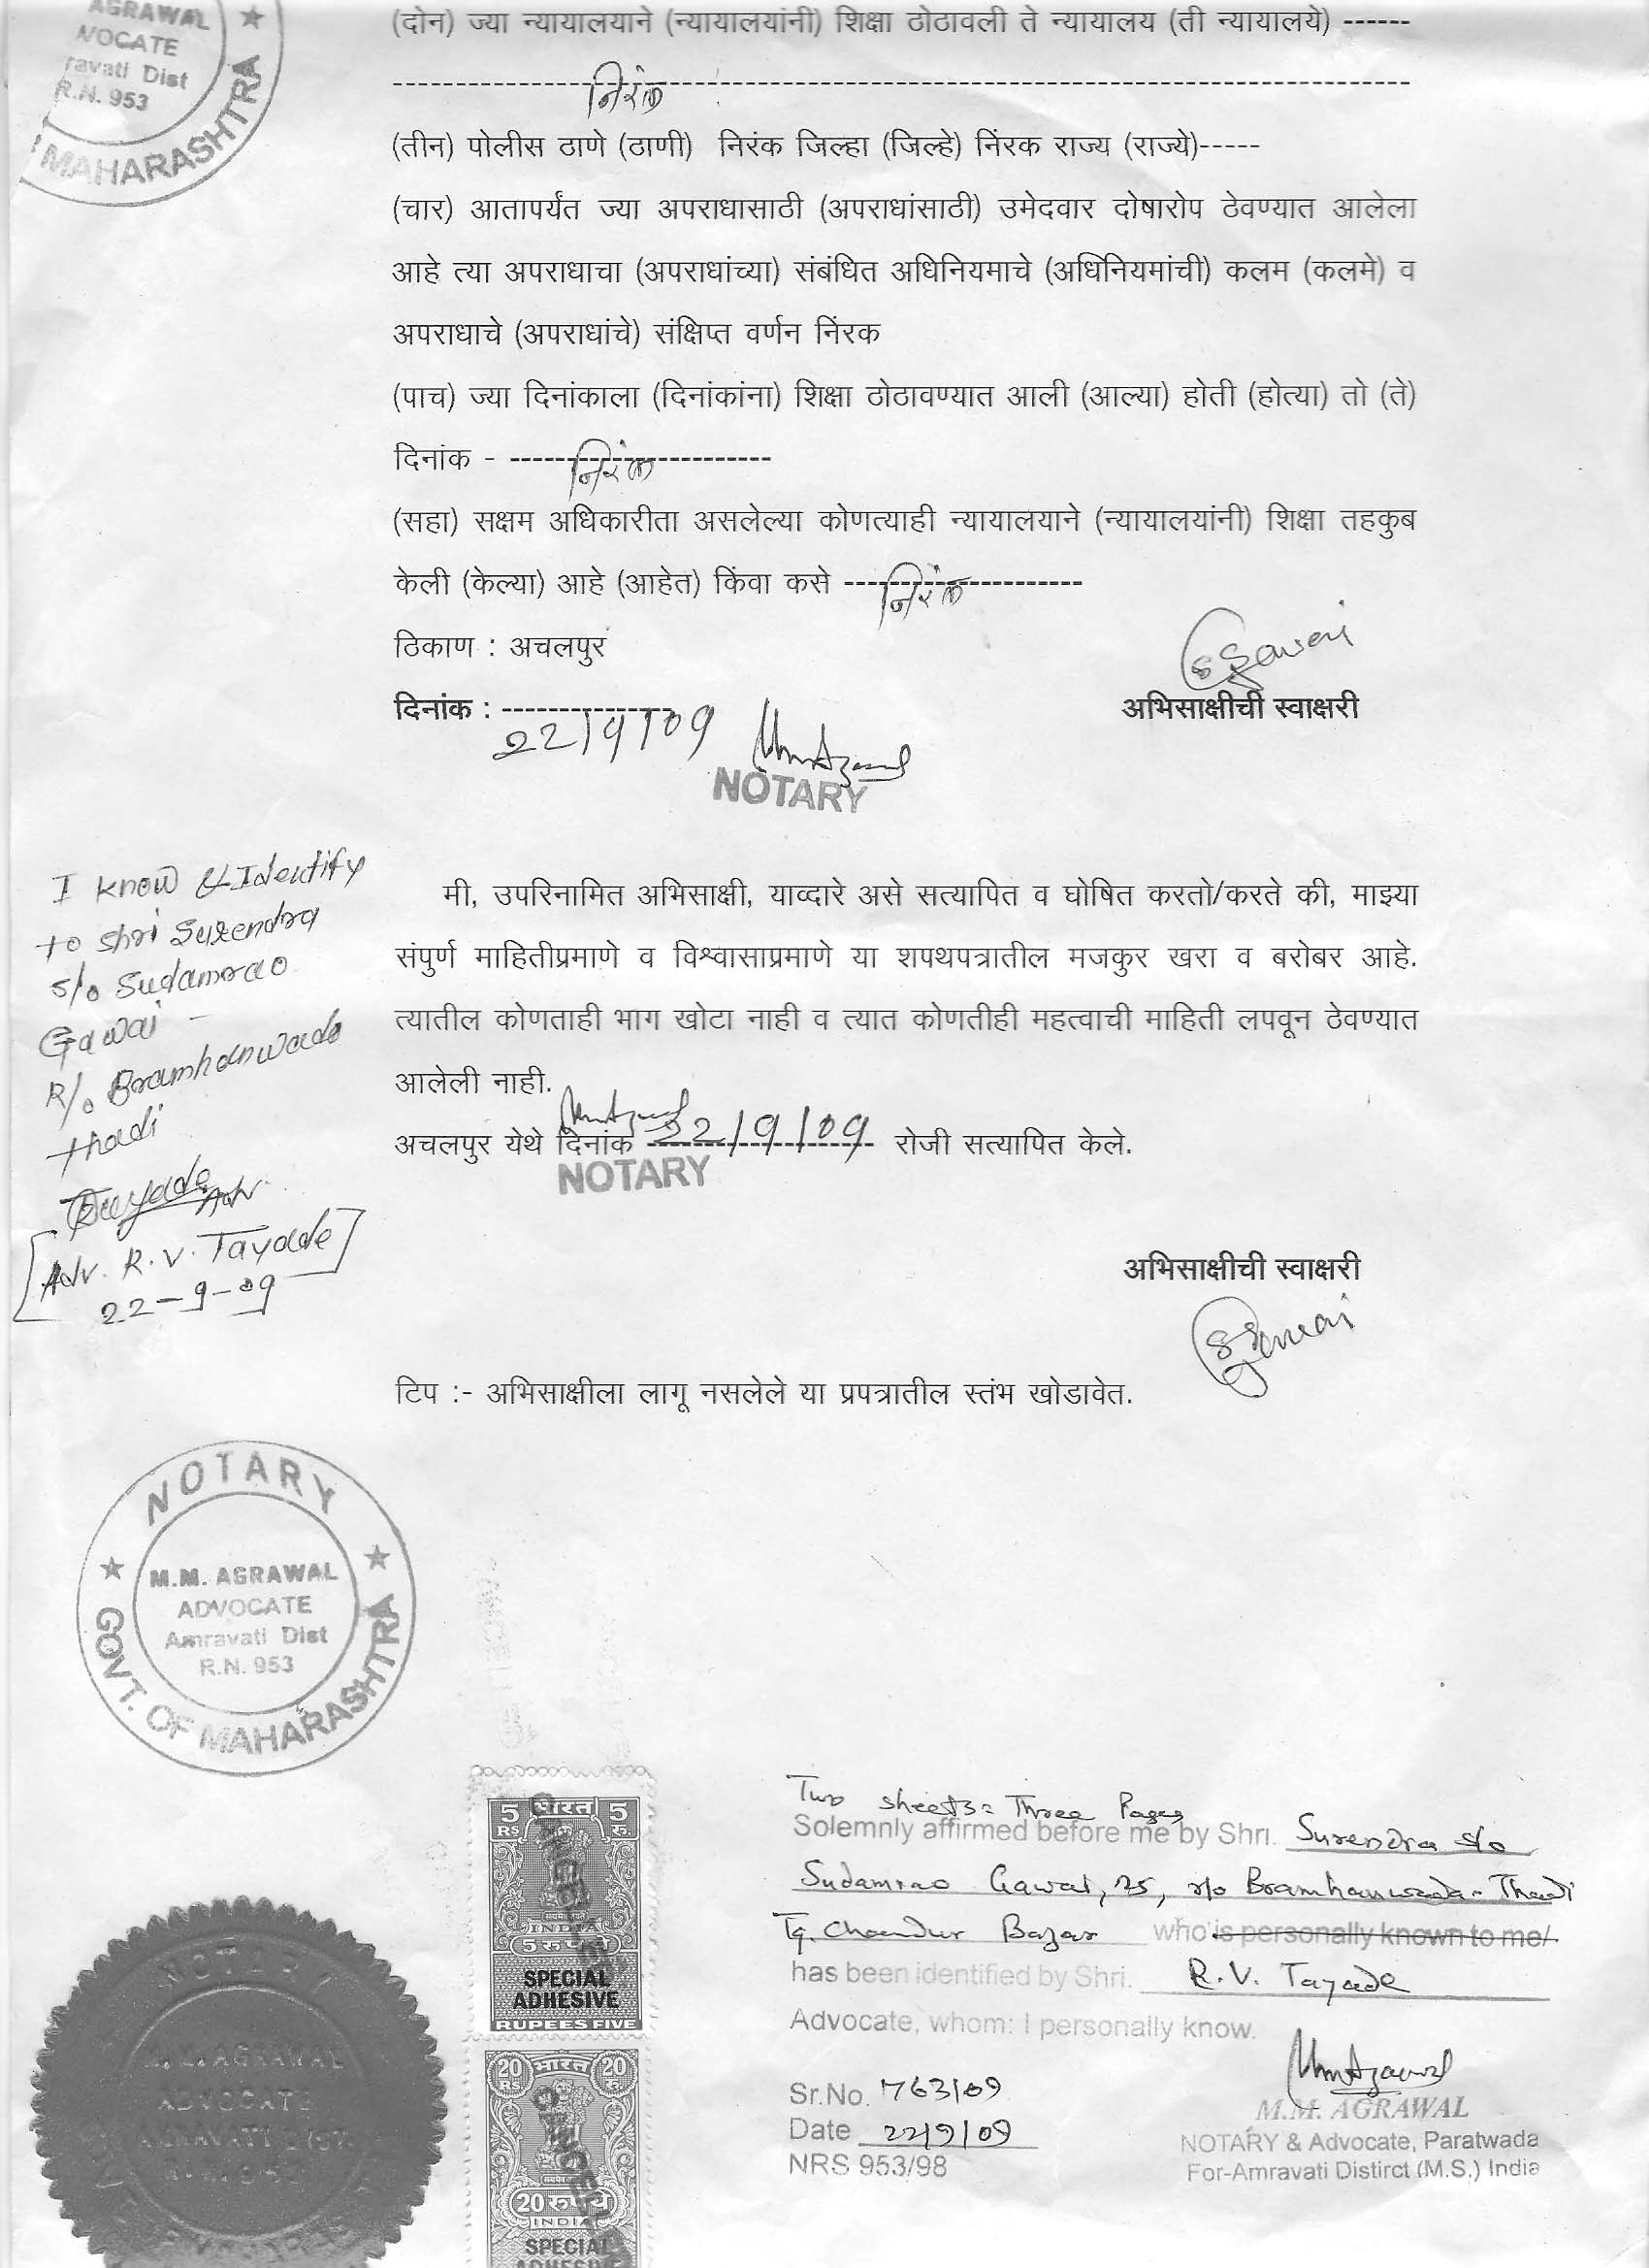 AGRAWAL
VOCATE
ravati Dist
R.N. 953
MAHARASHTRA
(दोन) ज्या न्यायालयाने (न्यायालयांनी) शिक्षा ठोठावली ते न्यायालय (ती न्यायालये) ------
निरंक
(तीन) पोलीस ठाणे (ठाणी) निरंक जिल्हा (जिल्हे) निंरक राज्य (राज्ये)-----
(चार) आतापर्यंत ज्या अपराधासाठी (अपराधांसाठी) उमेदवार दोषारोप ठेवण्यात आलेला
आहे त्या अपराधाचा (अपराधांच्या) संबंधित अधिनियमाचे (अधिनियमांची) कलम (कलमे) व
अपराधाचे (अपराधांचे) संक्षिप्त वर्णन निंरक
(पाच) ज्या दिनांकाला (दिनांकांना) शिक्षा ठोठावण्यात आली (आल्या) होती (होत्या) तो (ते)
दिनांक - ----------------------- निरंक
(सहा) सक्षम अधिकारीता असलेल्या कोणत्याही न्यायालयाने (न्यायालयांनी) शिक्षा तहकुब
केली (केल्या) आहे (आहेत) किंवा कसे --------------------- निरंक
ठिकाण : अचलपुर
दिनांक : --------------- 22/9/09
अभिसाक्षीची स्वाक्षरी
NOTARY
I know & Identify
to shri Surendra
s/o Sudamrao
Gawai -
R/o Bramhanwada
thadi
Adv.
[Adv. R. V. Tayade]
22-9-09
मी, उपरिनामित अभिसाक्षी, याव्दारे असे सत्यापित व घोषित करतो/करते की, माझ्या
संपुर्ण माहितीप्रमाणे व विश्वासाप्रमाणे या शपथपत्रातील मजकुर खरा व बरोबर आहे.
त्यातील कोणताही भाग खोटा नाही व त्यात कोणतीही महत्वाची माहिती लपवून ठेवण्यात
आलेली नाही.
अचलपुर येथे दिनांक 22/9/09 रोजी सत्यापित केले.
NOTARY
अभिसाक्षीची स्वाक्षरी
टिप :- अभिसाक्षीला लागू नसलेले या प्रपत्रातील स्तंभ खोडावेत.
NOTARY
M.M. AGRAWAL
ADVOCATE
Amravati Dist
R.N. 953
GOVT. OF MAHARASHTRA
5 भारत 5
RS रु.
INDIA
5 रुपये
SPECIAL
ADHESIVE
RUPEES FIVE
20 भारत 20
RS रु.
20 रुपये
INDIA
SPECIAL
ADHESIVE
NOTARY
M.M. AGRAWAL
ADVOCATE
Two sheets = Three Pages
Solemnly affirmed before me by Shri. Surendra s/o
Sudamrao Gawai, 25, r/o Bramhanwada-Thadi
Tq. Chandur Bazar who is personally known to me/
has been identified by Shri. R.V. Tayade
Advocate, whom: I personally know.
Sr.No. 763/09
Date 22/9/09
NRS 953/98
M.M. AGRAWAL
NOTARY & Advocate, Paratwada
For-Amravati Distirct (M.S.) India